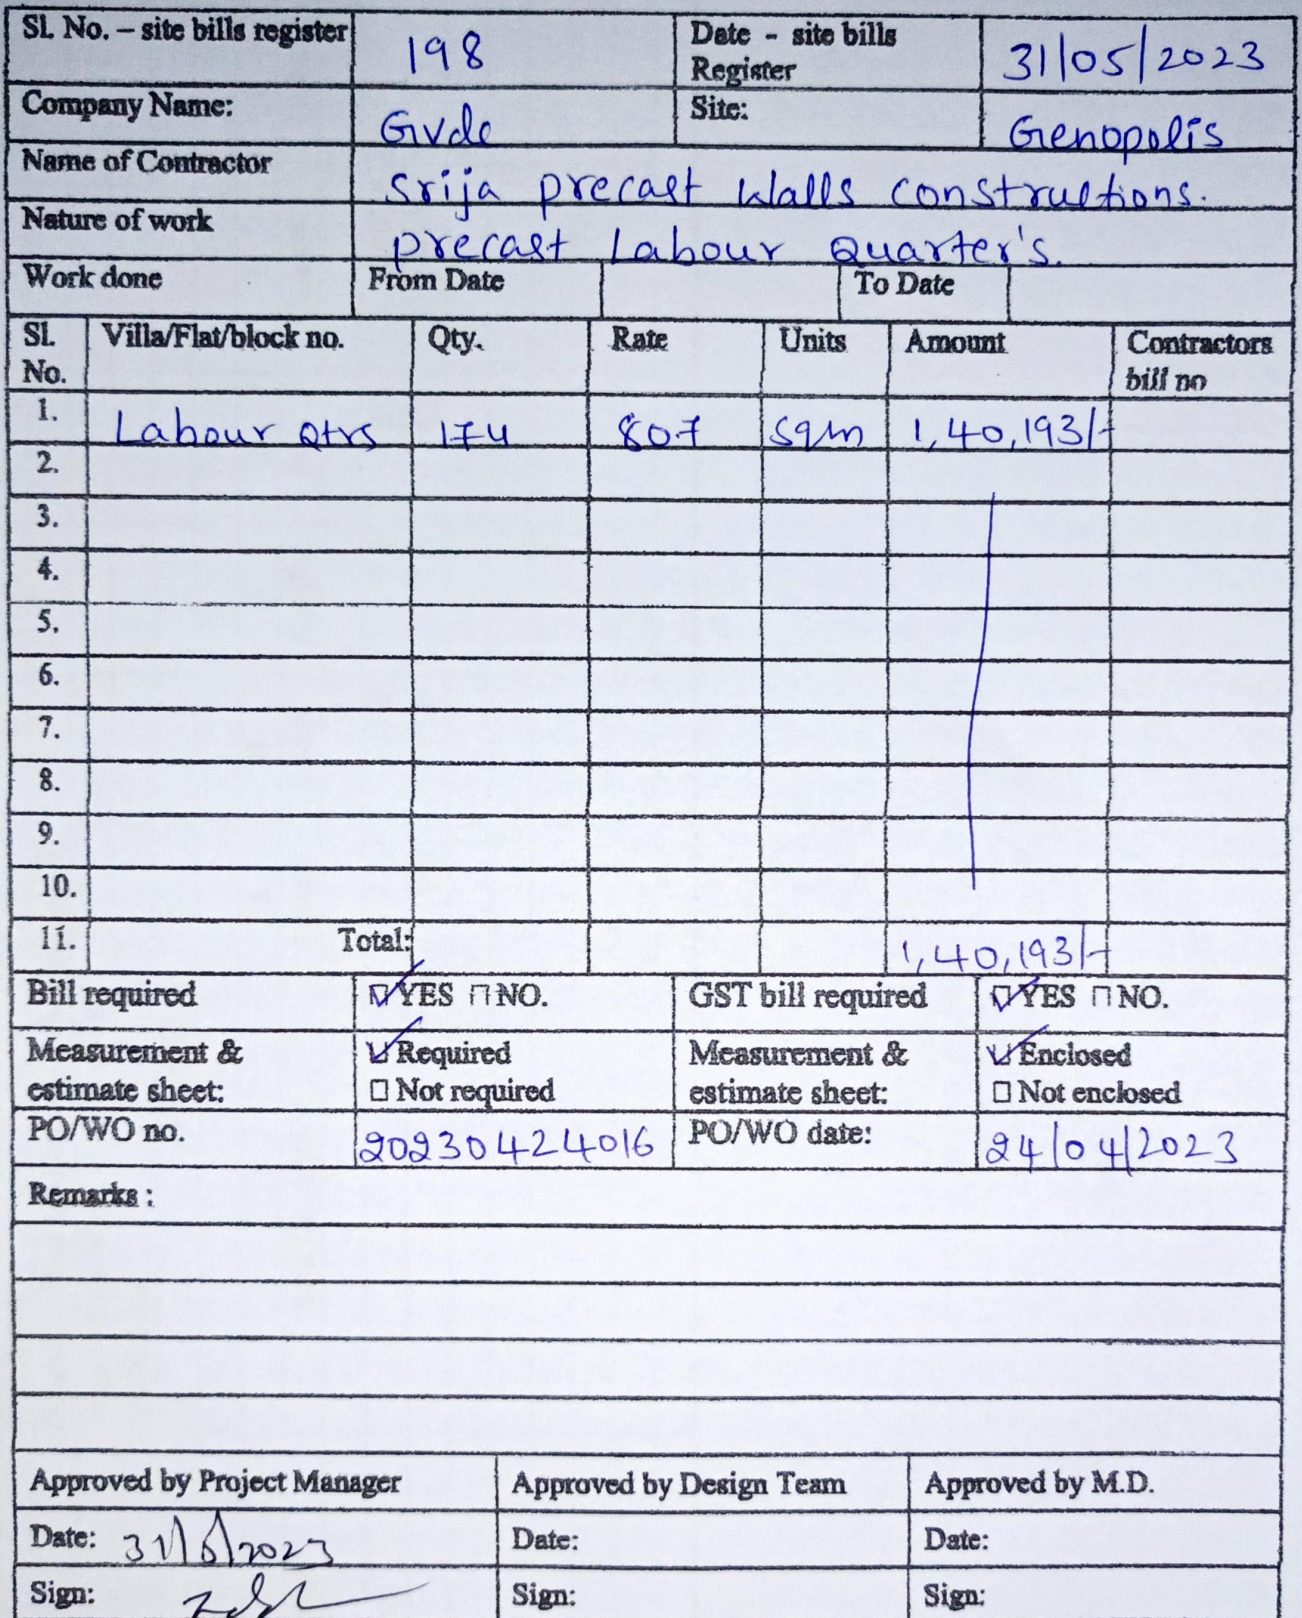 Sl. No. – site bills register 198 Date - site bills Register 31/05/2023
Company Name: Gvdc Site: Genopolis
Name of Contractor Srija precast Walls constructions.
Nature of work precast Labour Quarter's.
Work done From Date To Date
Sl. No. Villa/Flat/block no. Qty. Rate Units Amount Contractors bill no
1. Labour Qtrs 174 807 sqm 1,40,193/-
2.
3.
4.
5.
6.
7.
8.
9.
10.
11. Total: 1,40,193/-
Bill required ☑ YES ☐ NO. GST bill required ☑ YES ☐ NO.
Measurement & estimate sheet: ☑ Required ☐ Not required Measurement & estimate sheet: ☑ Enclosed ☐ Not enclosed
PO/WO no. 20230424016 PO/WO date: 24/04/2023
Remarks :
Approved by Project Manager Approved by Design Team Approved by M.D.
Date: 31/5/2023 Date: Date:
Sign: Sign: Sign: